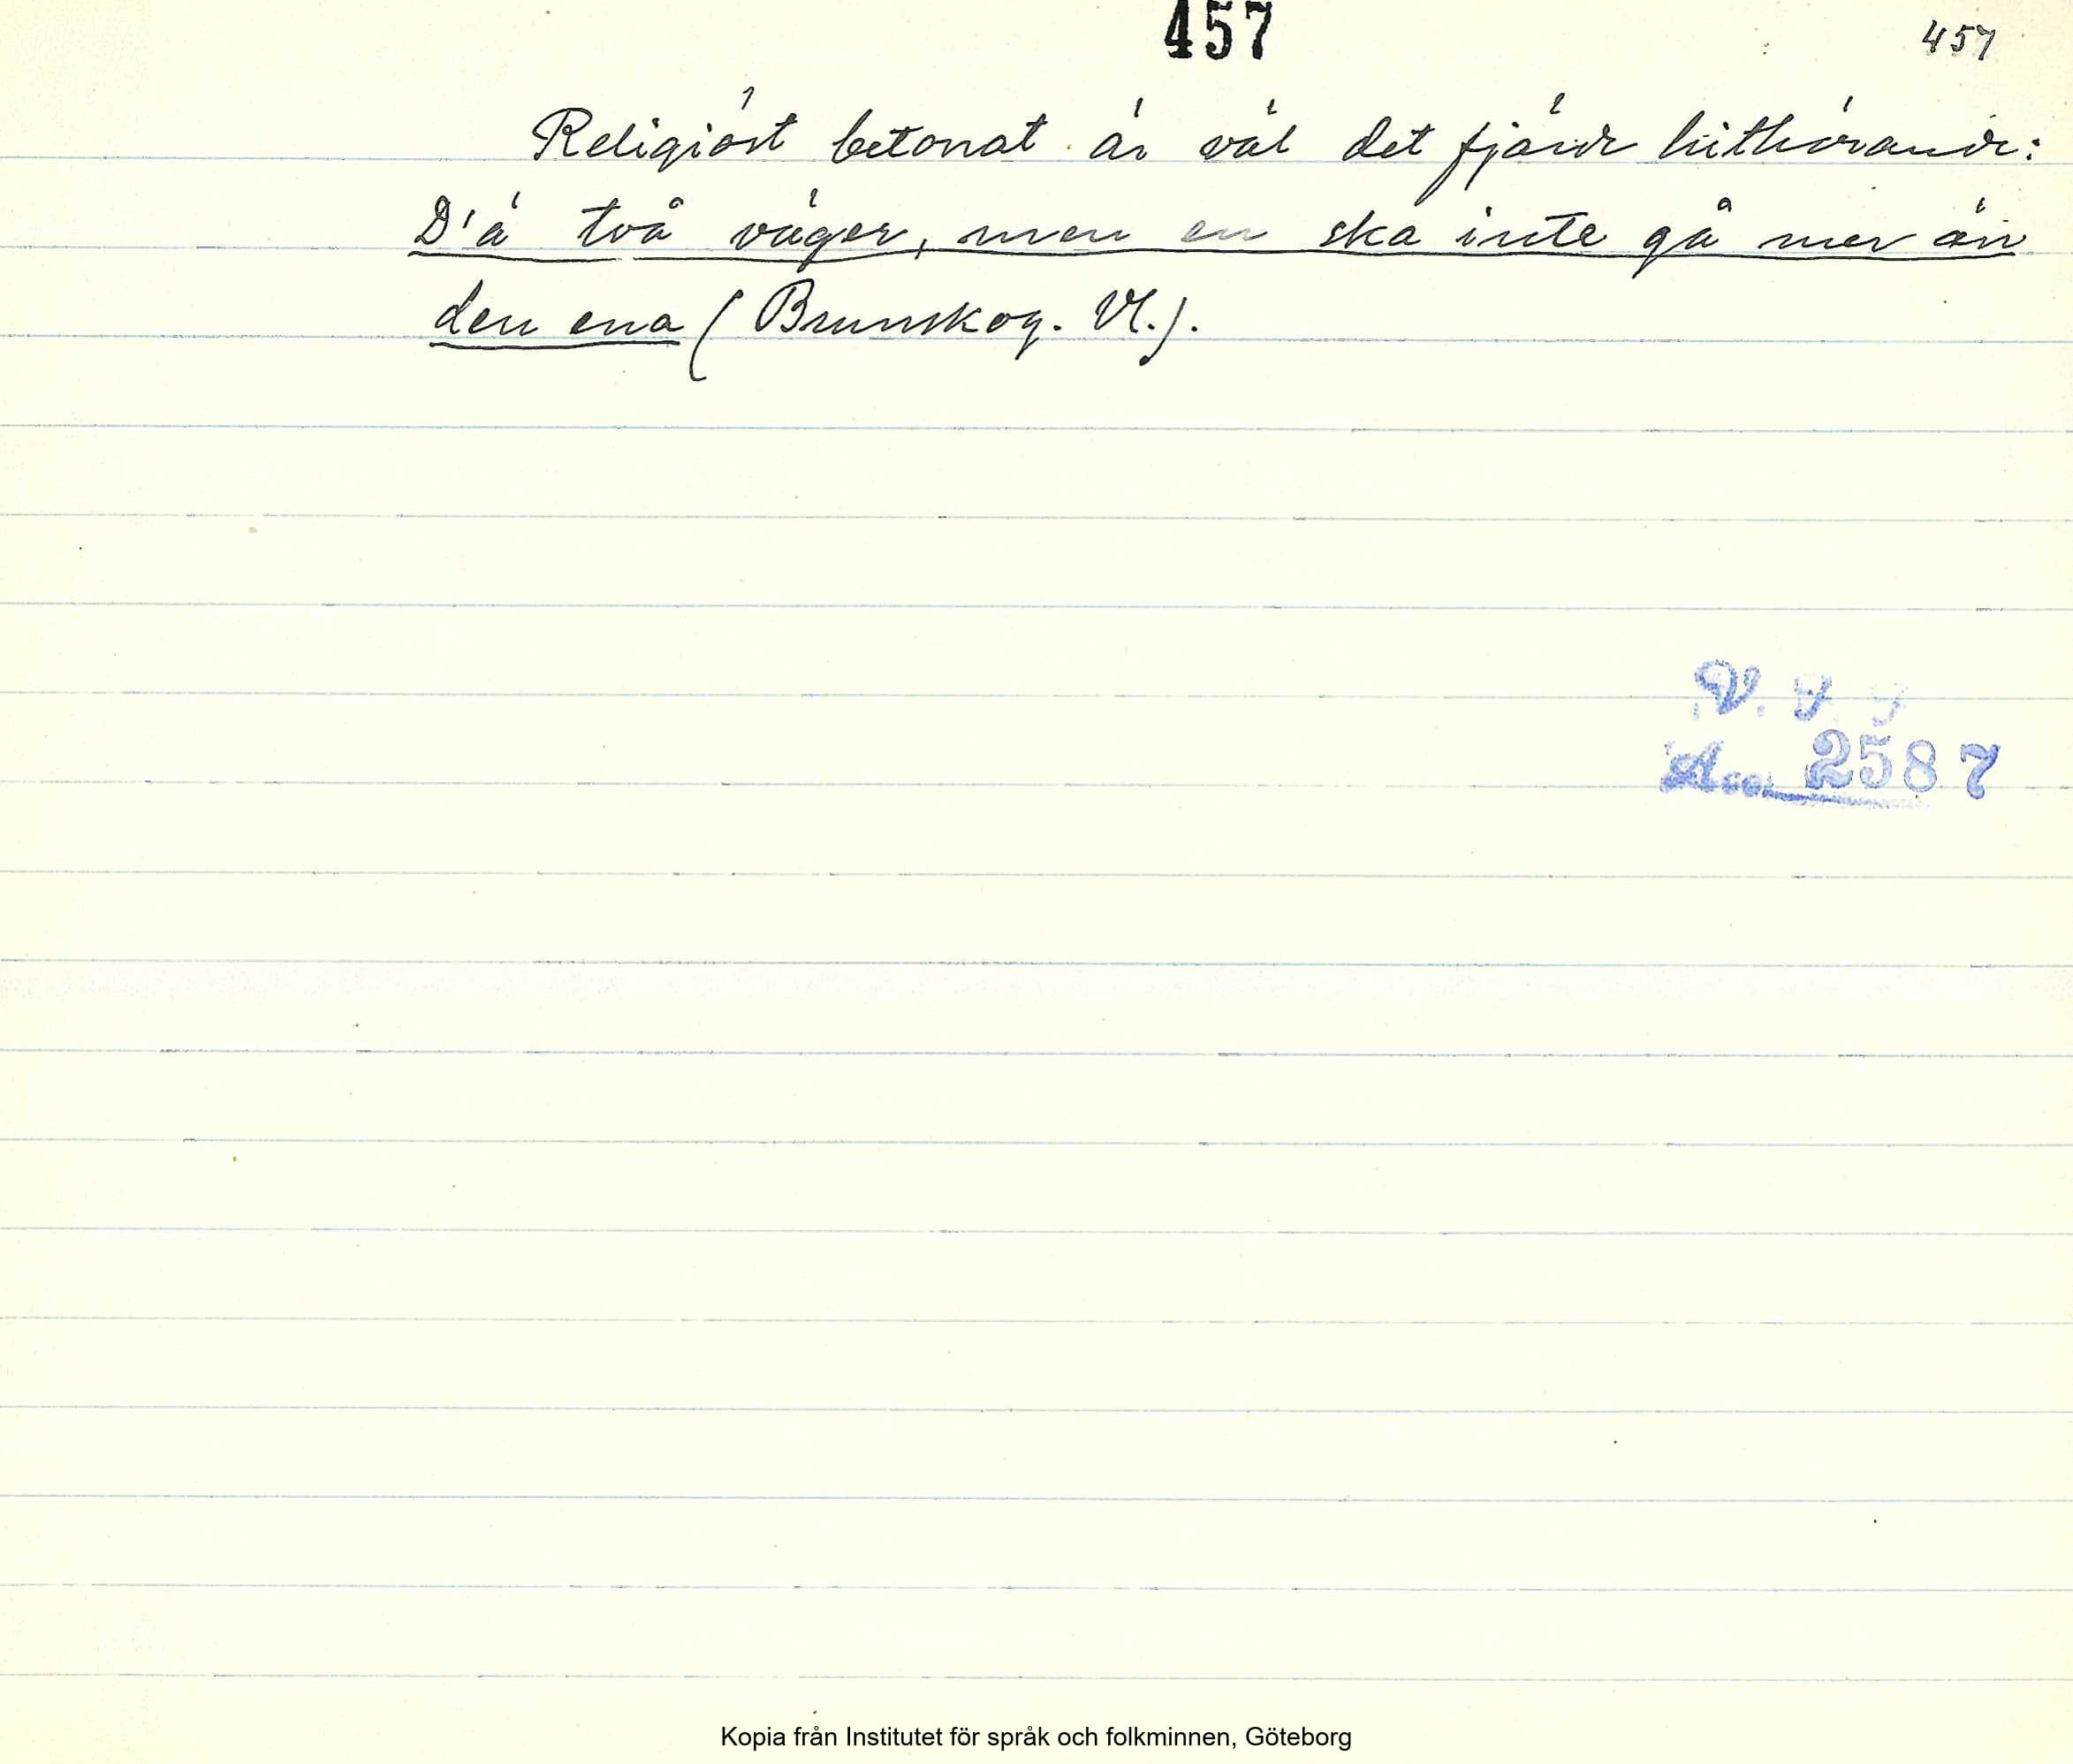 457
457
Religiöst betonat är väl det fjärde hithörande:
D'ä två väger, men en ska inte gå mer än
den ena (Brunskog. Vl.).
V. F. F
Acc. 2587
Kopia från Institutet för språk och folkminnen, Göteborg